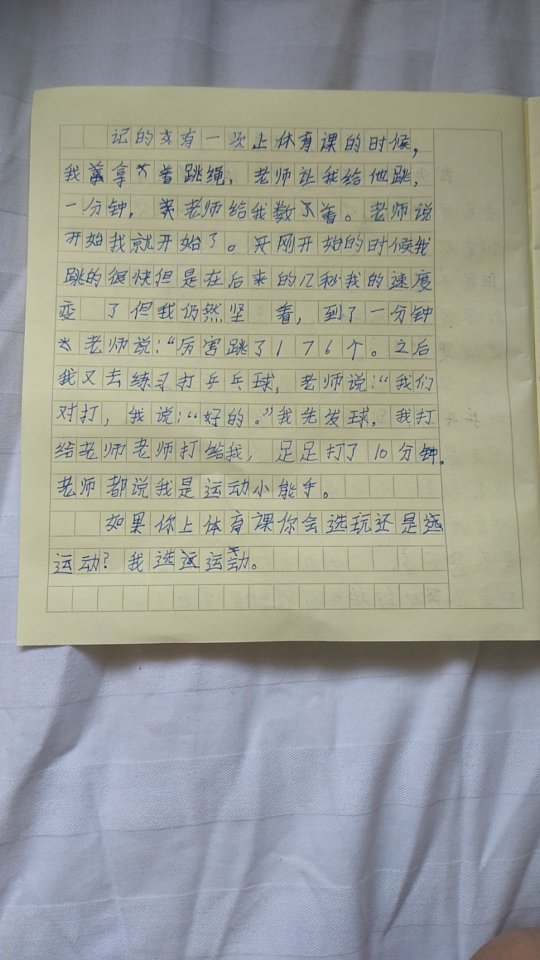 记的有一次上体育课的时候，
我拿着跳绳，老师让我给他跳，
一分钟，老师给我数着。老师说
开始我就开始了。刚开始的时候我
跳的很快但是在后来的几秒我的速度
变 了但我仍然坚 着，到了一分钟
老师说：“厉害跳了176个。之后
我又去练习打乒乓球，老师说：“我们
对打，我说：“好的。”我先发球，我打
给老师老师打给我，足足打了10分钟。
老师都说我是运动小能手。
如果你上体育课你会选玩还是选
运动？我选运动。